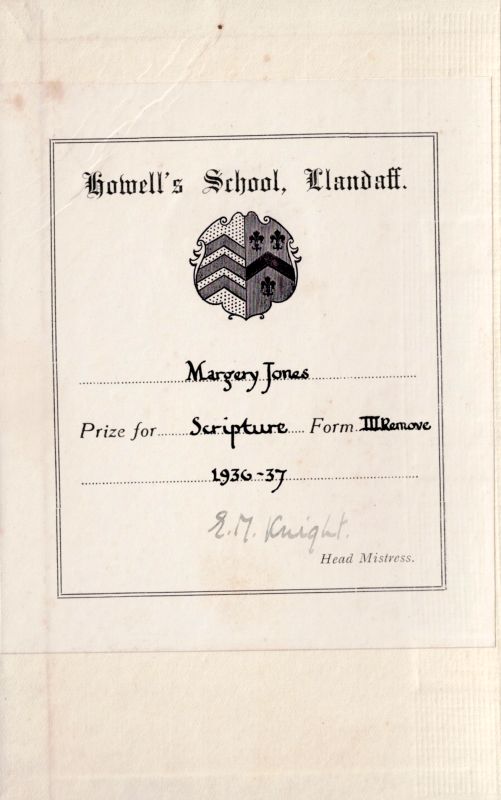 Howell's School, Llandaff.
Margery Jones
Prize for Scripture Form III Remove
1936-37
E. M. Knight.
Head Mistress.